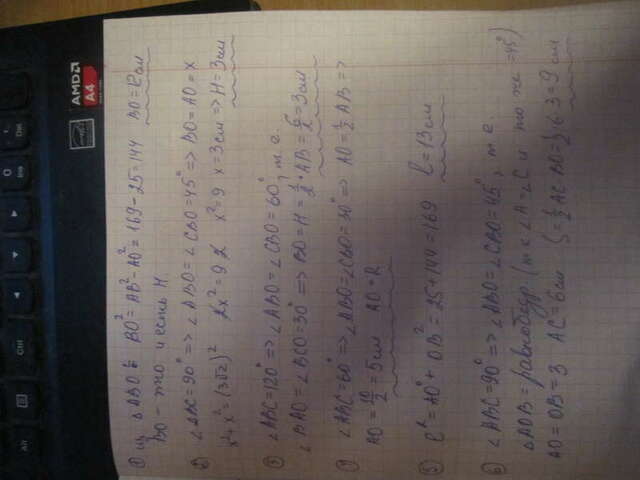 Alt
Ctrl
0
Ins
.
Del
AMD
A4
① из △ABO: BO²= AB²-AO²= 169-25=144 BO=12см
BO - это и есть H
② ∠ABC=90° => ∠ABO=∠CBO=45° => BO=AO=x
x²+x²=(3√2)² 2x²=9·2 x²=9 x=3см => H=3см
③ ∠ABC=120° => ∠ABO=∠CBO=60°, т.е.
∠BAO=∠BCO=30° => BO=H=1/2·AB=6/2=3см
④ ∠ABC=60° => ∠ABO=∠CBO=30° => AO=1/2 AB =>
AO=10/2=5см AO=R
⑤ l²=AO²+OB²=25+144=169 l=13см
⑥ ∠ABC=90° => ∠ABO=∠CBO=45°, т.е.
△AOB=равнобедр. (т.к ∠A=∠C и то же =45°)
AO=OB=3 AC=6см S=1/2 AC·BO=1/2·6·3=9см